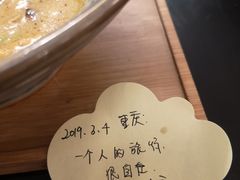 2019.3.4 重庆.
一个人的旅行.
很自在